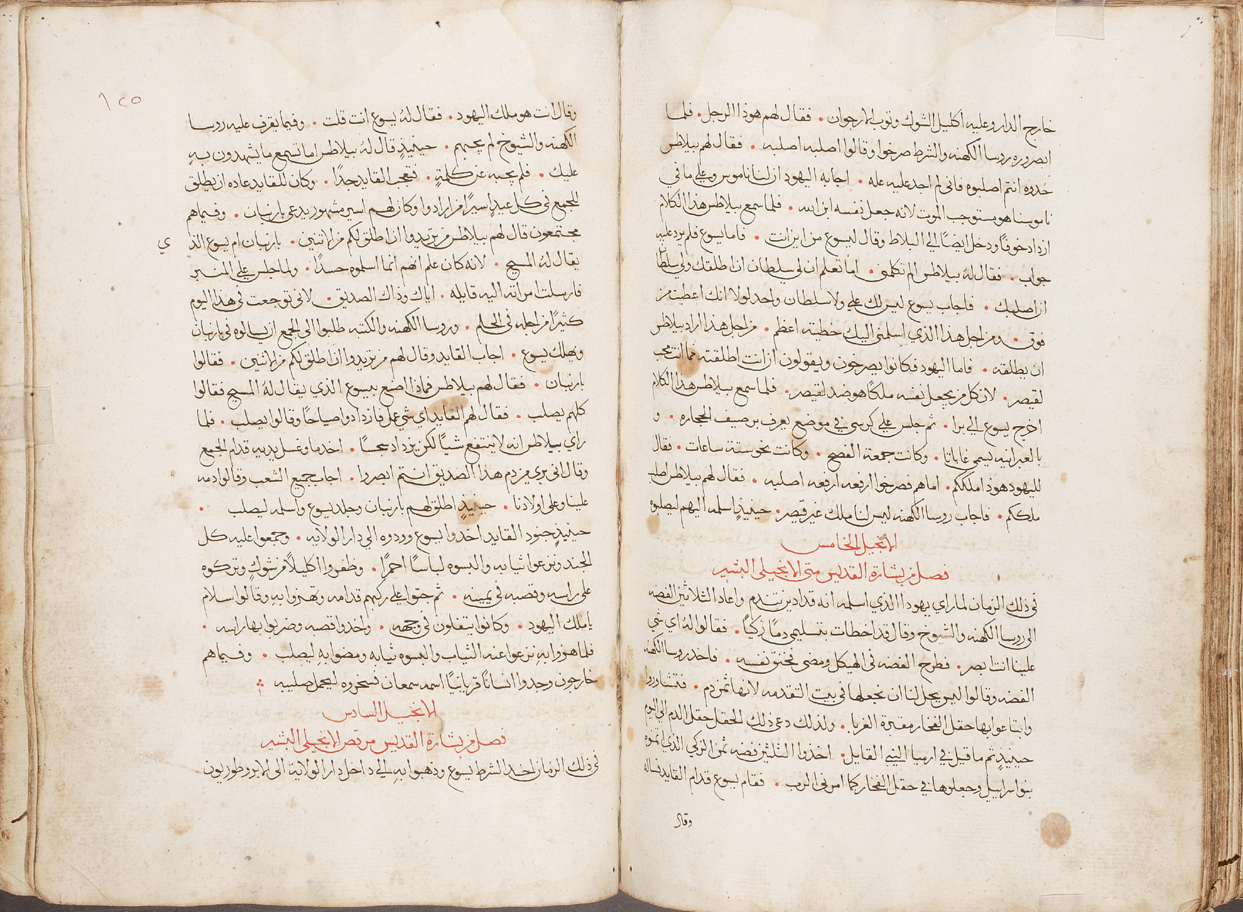 خارج الدار وعليه اكليل الشوك وثوب الارجوان . فقال لهم هوذا الرجل . فلما
ابصروه روسا الكهنه والشرط صرخوا وقالوا اصلبه اصلبه . فقال لهم بيلاطس
خدوه انتم اصلبوه فاني لم اجد عليه عله . اجابه اليهود ان لنا ناموس وعلي ما في
ناموسنا هو مستوجب الموت لانه جعل نفسه ابن الله . فلما سمع بيلاطس هذا الكلام
ازداد خوفًا ودخل ايضًا الي البلاط وقال ليسوع من اين انت . فاما يسوع فلم يرد عليه
جواب . فقال له بيلاطس الم تكلمني . اما تعلم ان لي سلطان ان اطلقك ولي سلطان
ان اصلبك . فاجاب يسوع ليس لك علي ولا سلطان واحد لولا انك اعطيت من
فوق . ومن اجل هذا الذي اسلمني اليك خطيته اعظم . من اجل هذا اراد بيلاطس
ان يطلقه . فاما اليهود فكانوا يصرخون ويقولون ان انت اطلقته فما انت محب
لقيصر . لان كل من يجعل نفسه ملكًا هو ضد لقيصر . فلما سمع بيلاطس هذا الكلام
اخرج يسوع الي برا . ثم جلس علي كرسي في موضع يعرف برصيف الحجاره . و
بالعبرانيه يسمي غاباثا . وكانت جمعة الفصح . وكانت نحو ستة ساعات . فقال
لليهود هوذا ملككم . اما هم فصرخوا ارفعه ارفعه اصلبه . فقال لهم بيلاطس اصلب
ملككم . فاجاب روسا الكهنه ليس لنا ملك غير قيصر . حينيذٍ اسلمه اليهم ليصلبوه
الانجيل الخامس
فصل من بشارة القديس متي الانجيلي البشير
في ذلك الزمان لما راي يهودا الذي اسلمه انه قد ادين تندم واعاد الثلاثين الفضه
الي روسا الكهنه والشيوخ وقال قد اخطات بتسليمي دمًا زكيًا . فقالوا له اي شي
علينا انت ابصر . فطرح الفضه في الهيكل ومضي فخنق نفسه . فاخد روسا الكهنه
الفضه وقالوا ليس يحل لنا ان نجعلها في بيت التقدمه لانها ثمن دم . فتشاوروا
وابتاعوا بها حقل الفخار مقبرة الغربا . ولذلك دعي ذلك الحقل حقل الدم الي اليوم
حينيذٍ تم ما قيل في ارميا النبي القايل . اخدوا الثلثين فضه ثمن الزكي الذي ثمنوه
بنو اسراييل وجعلوها في حقل الفخار كما امرني الرب . فقام يسوع قدام القايد فساله
وقال
١٢٥
وقال انت هو ملك اليهود . فقال له يسوع انت قلت . وفيما يقرف عليه روسا
الكهنه والشيوخ لم يجبهم . حينيذٍ قال له بيلاطس اما تسمع ما يشهدون به
عليك . فلم يجبه عن كلمةٍ . فتعجب القايد جدًا . وكان للقايد عاده ان يطلق
للجمع في كل عيد اسيرًا من ارادوا وكان لهم اسير مشهور يدعي باربان . وفيما هم
مجتمعون قال لهم بيلاطس من يريدوا ان اطلق لكم من الاثنين . باربان ام يسوع الذ
ي
يقال له المسيح . لانه كان علم انهم انما اسلموه حسدًا . ولما جلس علي المنبر
فارسلت امراته اليه قايله . اياك وذاك الصديق . لاني توجعت في هذا اليوم
كثيرًا من اجله في الحلم . وروسا الكهنه والكتبه طلبوا الي الجمع ان يسالوه في باربان
ويهلك يسوع . اجاب القايد وقال لهم من يريدوا ان اطلق لكم من الاثنين . فقالوا
باربان . فقال لهم بيلاطس فماذا اصنع بيسوع الذي يقال له المسيح فقالوا
كلهم يصلب . فقال لهم القايد اي شي عمل فازدادوا صياحًا وقالوا يصلب . فلما
راي بيلاطس انه لا ينتفع شيًا لكن يزداد سجسًا . اخد ما وغسل يديه قدام الجمع
وقال اني بري من دم هذا الصديق انتم ابصروا . اجاب جميع الشعب وقالوا دمه
علينا وعلي اولادنا . حينيذٍ اطلق لهم باربان وجلد يسوع واسلمه ليصلب .
حينيذٍ جنود القايد اخدوا يسوع وردوه الي دار الولايه . وجمعوا عليه كل
الجند ونزعوا ثيابه والبسوه لباسًا احمرًا . وظفروا اكليلًا من شوكٍ وتركوه
علي راسه وقصبه في يمينه . ثم جثوا علي ركبهم قدامه وتهزوا به وقالوا سلام
يا ملك اليهود . وكانوا يتفلون في وجهه . واخدوا قصبه وضربوا بها راسه .
فلما هزوا به نزعوا عنه الثياب والبسوه ثيابه ومضوا به ليصلب . وفيما هم
خارجون وجدوا انسانًا قريانيًا اسمه سمعان فسخروه ليحمل صليبه
الانجيل السادس
فصل من بشارة القديس مرقص الانجيلي البشير
في ذلك الزمان اخد الشرط يسوع وذهبوا به الي داخل دار الولاية الي الابروطوريون .